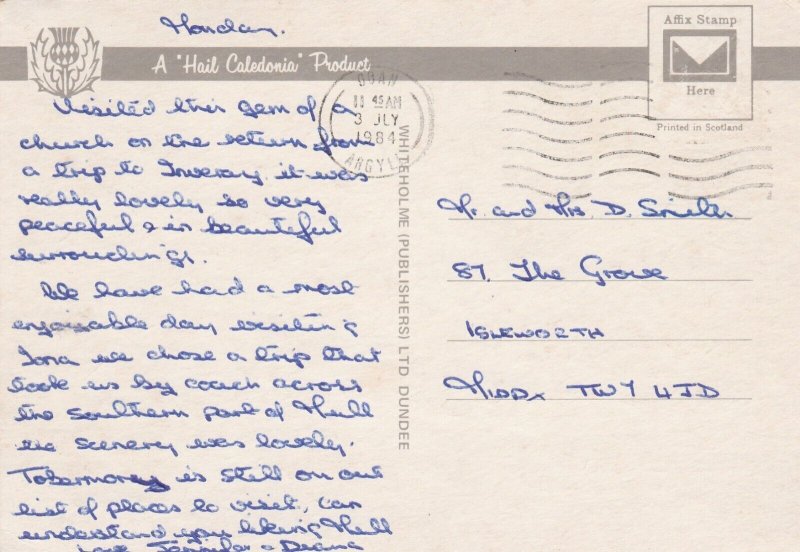 Monday.
A "Hail Caledonia" Product
Visited this gem of a
church on the return from
a trip to Inverary, it was
really lovely so very
peaceful & in beautiful
surroundings.
We have had a most
enjoyable day visiting
Iona we chose a trip that
took us by coach across
the southern part of Mull
the scenery was lovely.
Tobermorey is still on our
list of places to visit, can
understand you liking Mull
love Jennifer & Deana
WHITEHOLME (PUBLISHERS) LTD DUNDEE
OBAN
11 45AM
3 JLY
1984
ARGYLL
Affix Stamp
Here
Printed in Scotland
Mr. and Mrs. D. Smith
87, The Grove
ISLEWORTH
MIDDX TW7 4JD